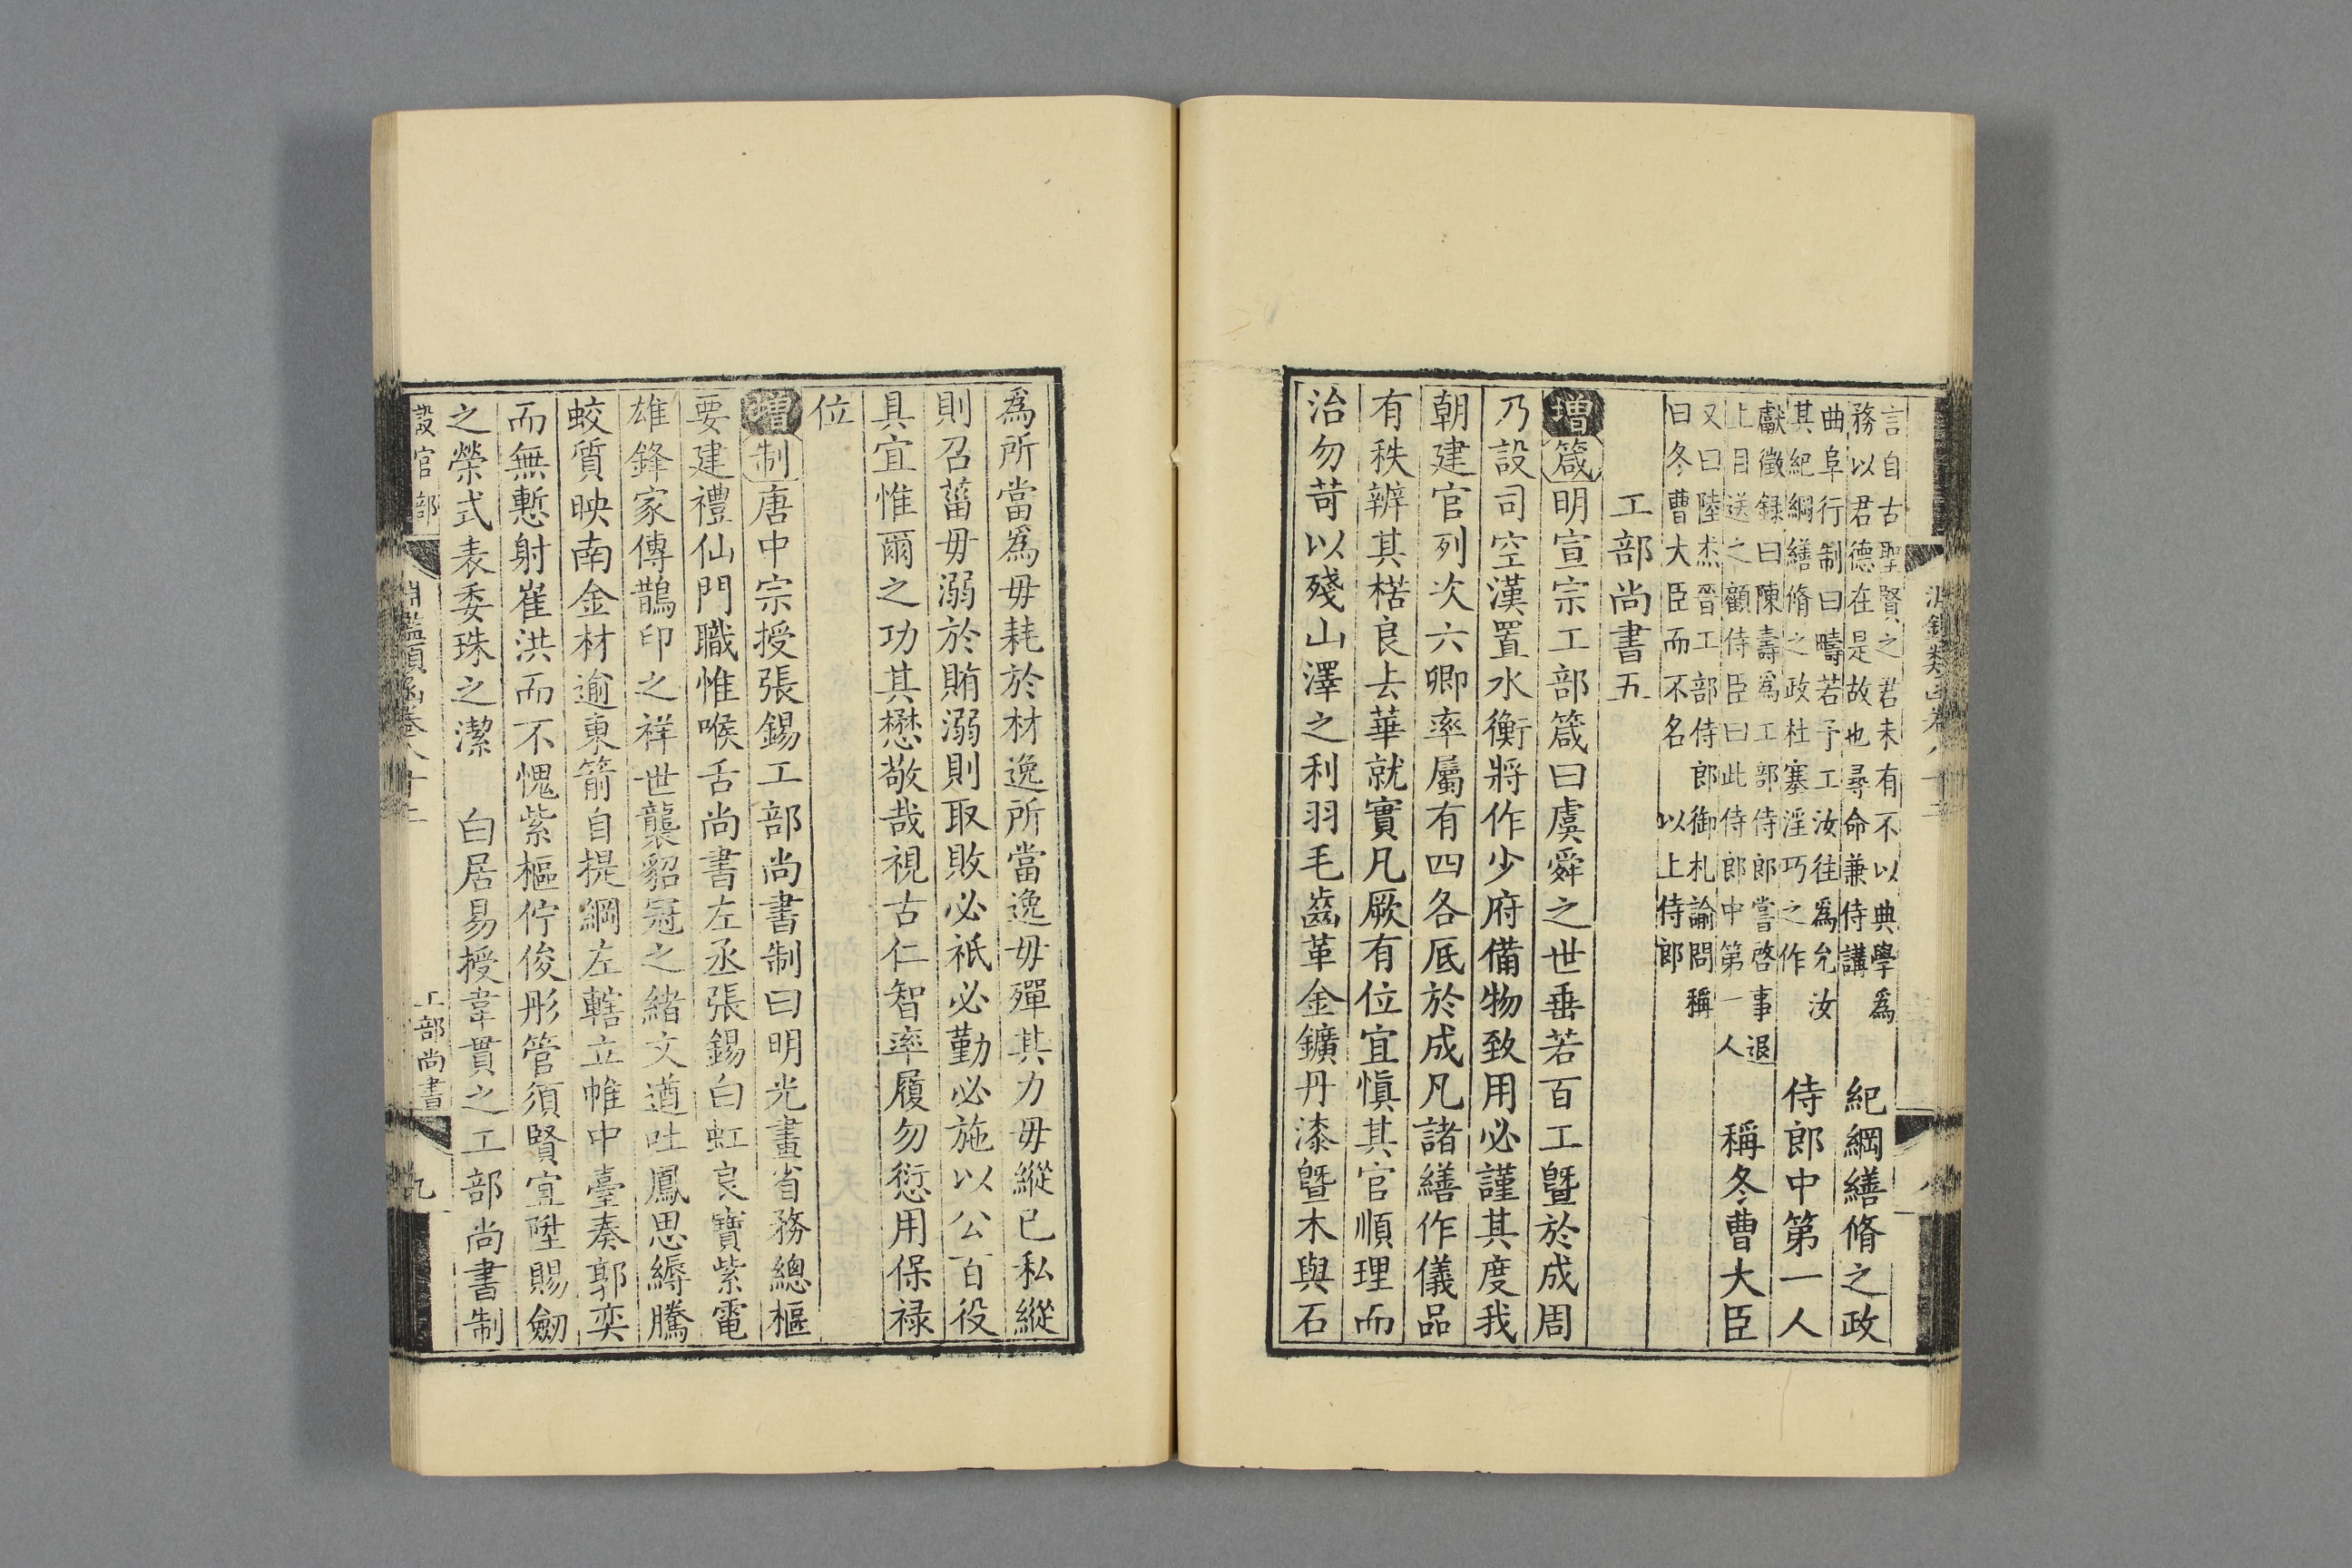 淵鑑類函卷八十
言自古聖賢之君未有不以典學爲
務以君德在是故也尋命兼侍講
紀綱繕脩之政
曲阜行制曰疇若予工汝往爲允汝
其紀綱繕脩之政杜塞淫巧之作
侍郎中第一人
獻徵録曰陳壽爲工部侍郎嘗啓事退
上目送之顧侍臣曰此侍郎中第一人
稱冬曹大臣
又曰陸杰晉工部侍郎御札諭問稱
曰冬曹大臣而不名 以上侍郎
工部尚書五
增箴明宣宗工部箴曰虞舜之世垂若百工曁於成周
乃設司空漢置水衡將作少府備物致用必謹其度我
朝建官列次六卿率屬有四各厎於成凡諸繕作儀品
有秩辨其楛良去華就實凡厥有位宜愼其官順理而
治勿苛以殘山澤之利羽毛齒革金鑛丹漆曁木與石
爲所當爲毋耗於材逸所當逸毋殫其力毋縱已私縱
則召菑毋溺於賄溺則取敗必祇必勤必施以公百役
具宜惟爾之功其懋敬哉視古仁智率履勿愆用保祿
位
增制唐中宗授張錫工部尚書制曰明光畫省務總樞
要建禮仙門職惟喉舌尚書左丞張錫白虹良寶紫電
雄鋒家傳鵲印之祥世襲貂冠之緒文遒吐鳳思縟騰
蛟質映南金材逾東箭自提綱左轄立帷中臺奏郭奕
而無慙射崔洪而不愧紫樞佇俊彤管須賢宜陞賜劒
之榮式表委珠之潔 白居易授韋貫之工部尚書制
設官部 淵鑑類函卷八十二 工部尚書 九